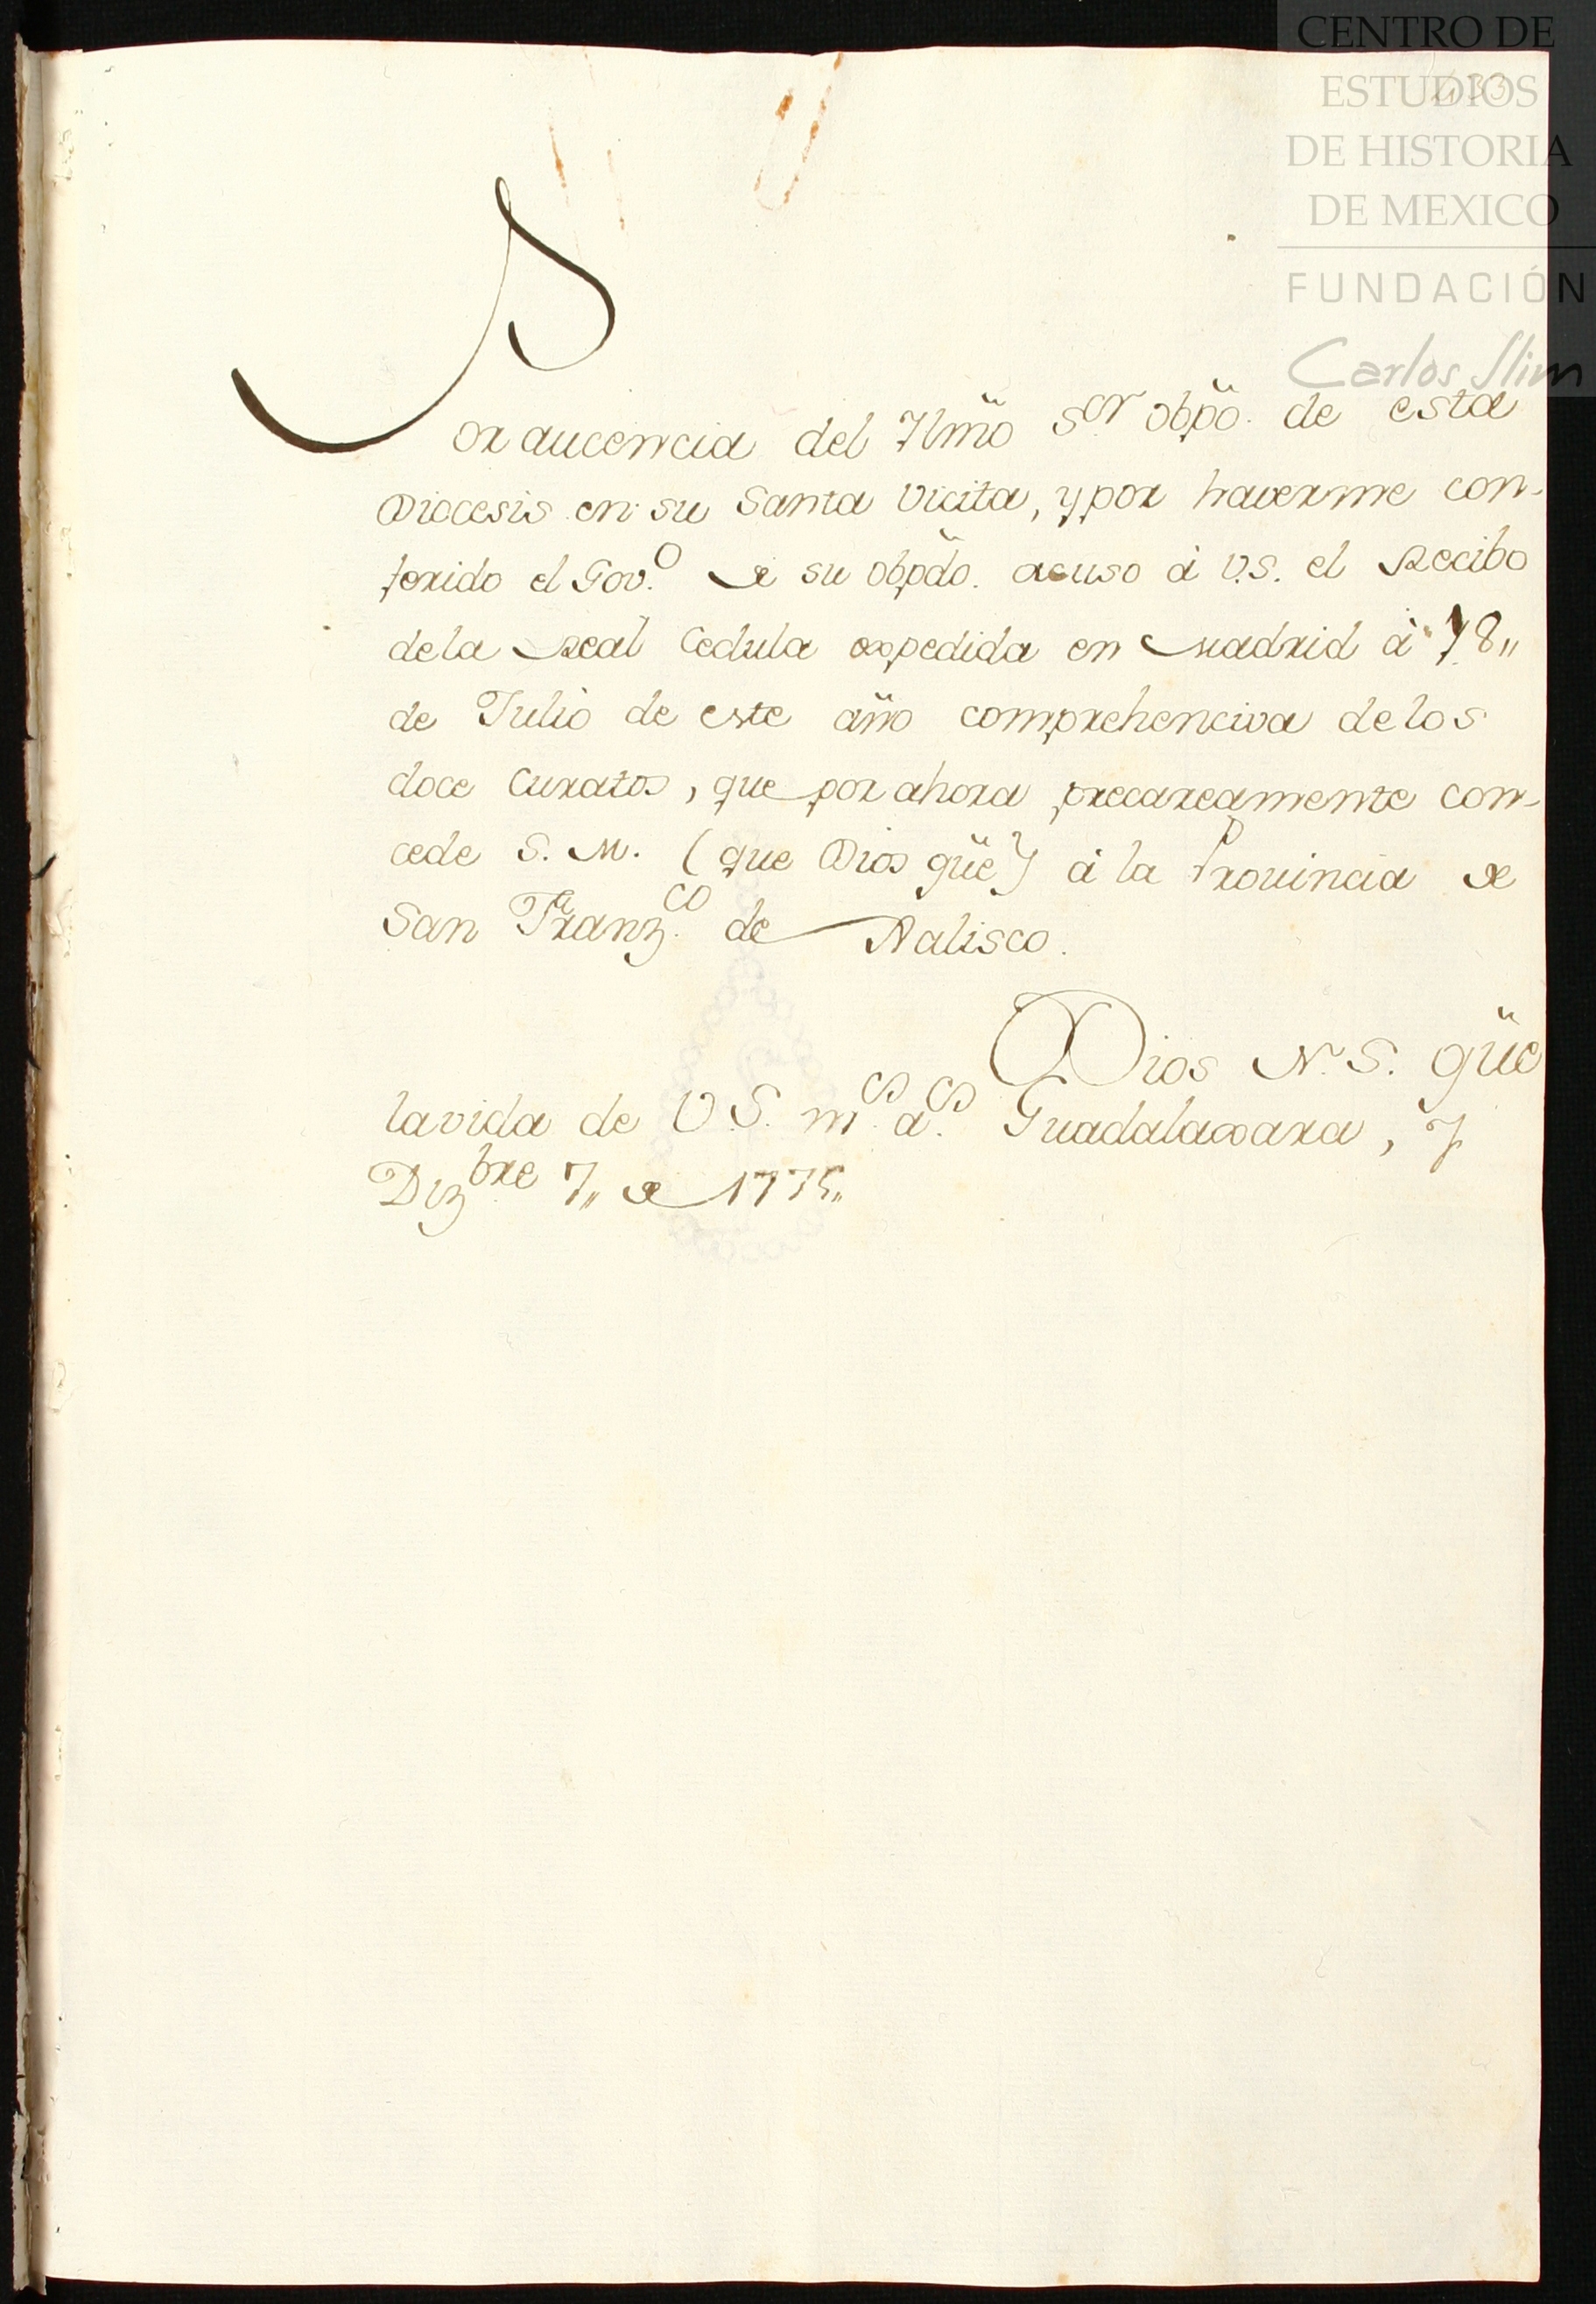 CENTRO DE
ESTUDIOS
DE HISTORIA
DE MEXICO
FUNDACIÓN
Carlos Slim
433
Por aucencia del Yllmõ S.or obpõ. de esta
Diocesis en su Santa Vicita, y por haverme con-
ferido el Gov.o de su obpdõ. acuso â V.S. el Recibo
dela Real Cedula expedida en Madrid â 18,,
de Julio de este año comprehenciva delos
doce Curatos, que por ahora precareamente con-
cede S. M. (que Dios güe) â la Provincia de
San Franz.co de Xalisco.
Dios N. S. güe
la vida de V.S. m.s a.s Guadalaxara, y
Diz.bre 7,, de 1775,,